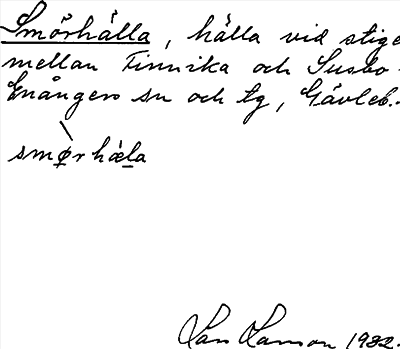 Smörhälla, hälla vid stige
mellan Finnika och Susbo
Enångers sn och tg, Gävleb.
smørhæla
Lars Larsson 1982.